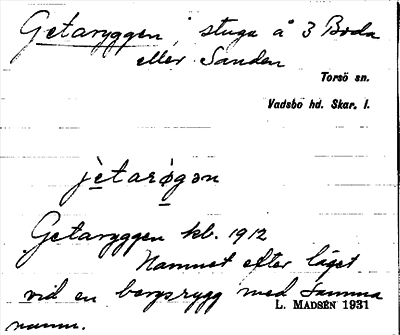 Getaryggen, stuga å 3 Boda
eller Sanden
Torsö sn.
Vadsbo hd. Skar. l.
jètarø̀gən
Getaryggen kb. 1912
Namnet efter läget
vid en bergsrygg med samma
L. MADSÉN 1931
namn.